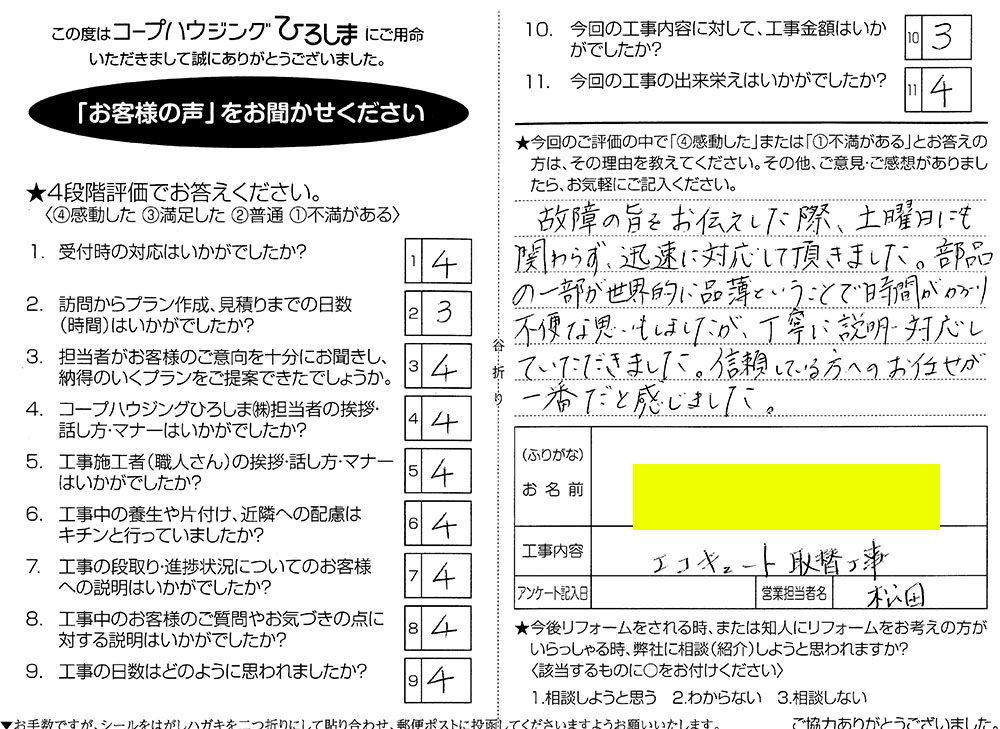 この度はコープハウジングひろしまにご用命
いただきまして誠にありがとうございました。
「お客様の声」をお聞かせください
★4段階評価でお答えください。
〈④感動した ③満足した ②普通 ①不満がある〉
1. 受付時の対応はいかがでしたか?
1 4
2. 訪問からプラン作成、見積りまでの日数
(時間)はいかがでしたか?
2 3
3. 担当者がお客様のご意向を十分にお聞きし、
納得のいくプランをご提案できたでしょうか。
3 4
4. コープハウジングひろしま㈱担当者の挨拶・
話し方・マナーはいかがでしたか?
4 4
5. 工事施工者(職人さん)の挨拶・話し方・マナー
はいかがでしたか?
5 4
6. 工事中の養生や片付け、近隣への配慮は
キチンと行っていましたか?
6 4
7. 工事の段取り・進捗状況についてのお客様
への説明はいかがでしたか?
7 4
8. 工事中のお客様のご質問やお気づきの点に
対する説明はいかがでしたか?
8 4
9. 工事の日数はどのように思われましたか?
9 4
▼お手数ですが、シールをはがしハガキを二つ折りにして貼り合わせ、郵便ポストに投函してくださいますようお願いいたします。
谷折り
10. 今回の工事内容に対して、工事金額はいか
がでしたか?
10 3
11. 今回の工事の出来栄えはいかがでしたか?
11 4
★今回のご評価の中で「④感動した」または「①不満がある」とお答えの
方は、その理由を教えてください。その他、ご意見・ご感想がありまし
たら、お気軽にご記入ください。
故障の旨をお伝えした際、土曜日にも
関わらず、迅速に対応して頂きました。部品
の一部が世界的に品薄ということで時間がかかり
不便な思いもしましたが、丁寧に説明・対応し
ていただきました。信頼している方へのお任せが
一番だと感じました。
(ふりがな)
お名前
工事内容 エコキュート取替工事
アンケート記入日 営業担当者名 松田
★今後リフォームをされる時、または知人にリフォームをお考えの方が
いらっしゃる時、弊社に相談(紹介)しようと思われますか?
〈該当するものに○をお付けください〉
1.相談しようと思う 2.わからない 3.相談しない
ご協力ありがとうございました。